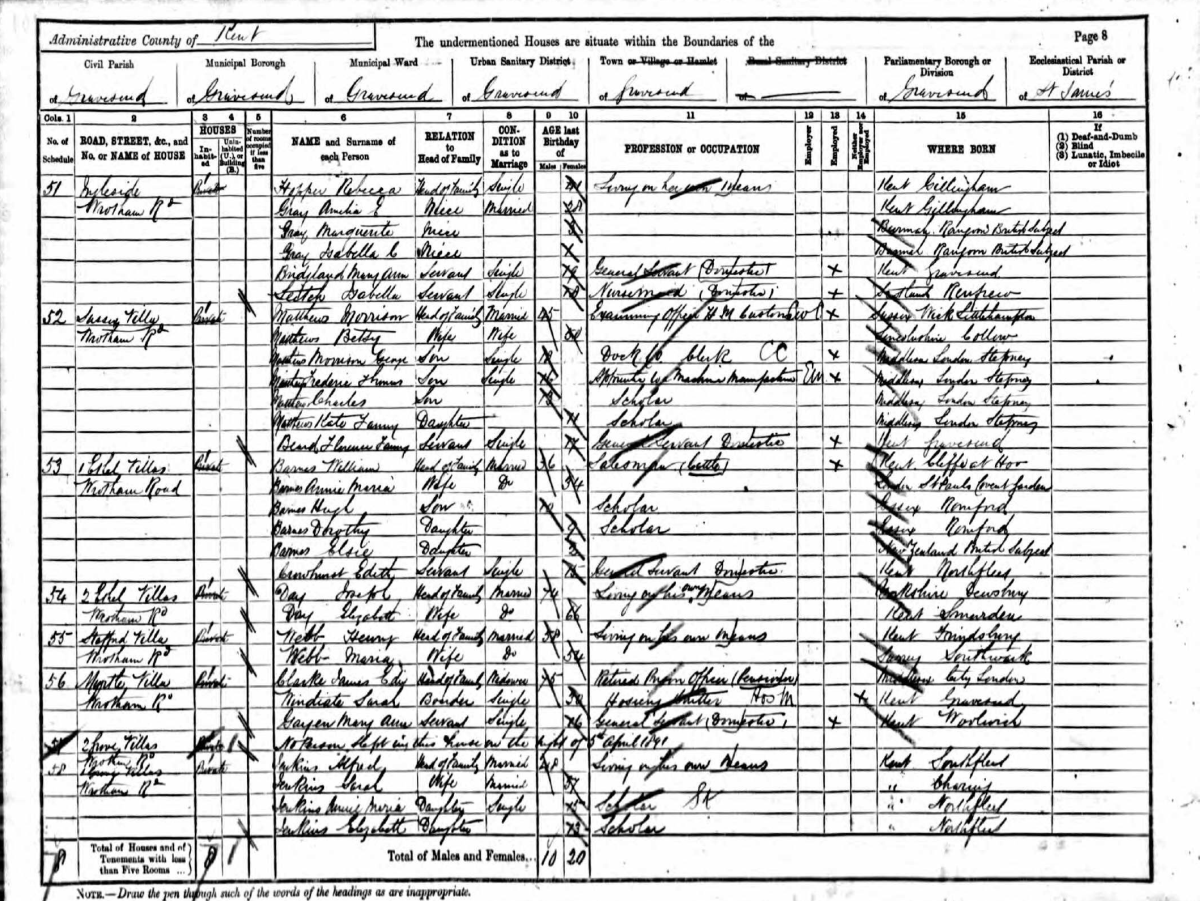 Administrative County of Kent
The undermentioned Houses are situate within the Boundaries of the
Page 8
Civil Parish of Gravesend
Municipal Borough of Gravesend
Municipal Ward of Gravesend
Urban Sanitary District of Gravesend
Town or Village or Hamlet of Gravesend
Rural Sanitary District of
Parliamentary Borough or Division of Gravesend
Ecclesiastical Parish or District of St James
Cols. 1 2 3 4 5 6 7 8 9 10 11 12 13 14 15 16
No. of Schedule
ROAD, STREET, &c., and No. or NAME of HOUSE
HOUSES
In-habit-ed
Unin-habited (U.), or Building (B.)
Number of rooms occupied if less than five
NAME and Surname of each Person
RELATION to Head of Family
CON-DITION as to Marriage
AGE last Birthday of
Males Females
PROFESSION or OCCUPATION
Employer
Employed
Neither Employer nor Employed
WHERE BORN
If
(1) Deaf-and-Dumb
(2) Blind
(3) Lunatic, Imbecile or Idiot
51 Ingleside 1 Hopper Rebecca Head of Family Single Living on her own Means Kent Gillingham
Wrotham Rd Gray Amelia E Niece Married 28 Kent Gillingham
Gray Marguerite Niece Burmah Rangoon British Subject
Gray Isabella C Niece Burmah Rangoon British Subject
Bridgland Mary Ann Servant Single General Servant (Domestic) x Kent Gravesend
Isabella Servant Single 18 Nursemaid (Domestic) x Scotland Renfrew
52 Sussex Villa 1 Private Matthews Morrison Head of Family Married 45 Examining Officer H M Customs x Sussex Wick Littlehampton
Wrotham Rd Matthews Betsy Wife Wife Lincolnshire
Matthews Morrison George Son Single Dock Co Clerk CC x Middlesex London Stepney
Matthews Frederic Thomas Son Single x Middlesex London Stepney
Matthews Charles Son 13 Scholar Middlesex London Stepney
Matthews Kate Fanny Daughter 11 Scholar Middlesex London Stepney
Beard Florence Fanny Servant Single General Servant Domestic x Kent Gravesend
53 1 Ethel Villas 1 Private Barnes William Head of Family Married 36 Salesman (Cattle) x Kent Cliffe at Hoo
Wrotham Road Barnes Annie Maria Wife Do 34 London St Pauls Covent Garden
Barnes Hugh Son 10 Scholar Essex Romford
Barnes Dorothy Daughter 9 Scholar Essex Romford
Barnes Elsie Daughter 2 New Zealand British Subject
Crowhurst Edith Servant Single 15 General Servant Domestic Kent Northfleet
54 2 Ethel Villas 1 Private Day Joseph Head of Family Married 74 Living on his own Means Yorkshire Dewsbury
Wrotham Rd Day Elizabeth Wife Do 66 Kent Smarden
55 Stafford Villa 1 Private Webb Henry Head of Family Married 58 Living on his own Means Kent Frindsbury
Wrotham Rd Webb Maria Wife Do 54 Surrey Southwark
56 Myrtle Villa 1 Private Clarke James Head of Family Widower 75 Retired Prison Officer (Pensioner) Middlesex City London
Wrotham Rd Sarah Boarder Single Hosiery Knitter Hos M x Kent Gravesend
Mary Ann Servant Single 16 General Servant (Domestic) x Kent Woolwich
57 2 Grove Villas 1 No Person slept in this house on the night of 5th April 1891
Wrotham Rd
58 Villas Private Jenkins Alfred Head of Family Married 48 Living on his own Means Kent Southfleet
Wrotham Rd Jenkins Sarah Wife Married 57 " Charing
Jenkins Annie Maria Daughter Single 15 Scholar " Northfleet
Jenkins Elizabeth Daughter 13 Scholar " Northfleet
8 Total of Houses and of Tenements with less than Five Rooms ... 8 1 Total of Males and Females... 10 20
NOTE.—Draw the pen through such of the words of the headings as are inappropriate.